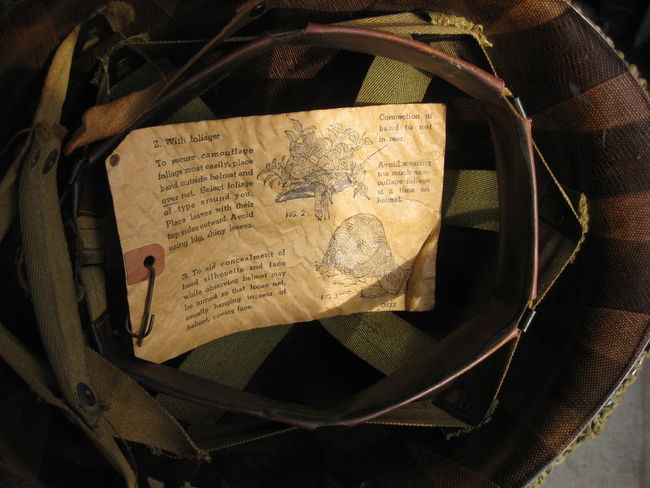 2. With foliage:
To secure camouflage
foliage most easily, place
band outside helmet and
over net. Select foliage
of type around you.
Place leaves with their
top sides outward. Avoid
using big, shiny leaves.
FIG. 2
Connection of
band to net
in rear.
Avoid wearing
too much cam-
ouflage foliage
at a time on
helmet.
3. To aid concealment of
head silhouette and face
while observing helmet may
be turned so that loose net,
usually hanging in rear of
helmet, covers face.
FIG 3
OVER